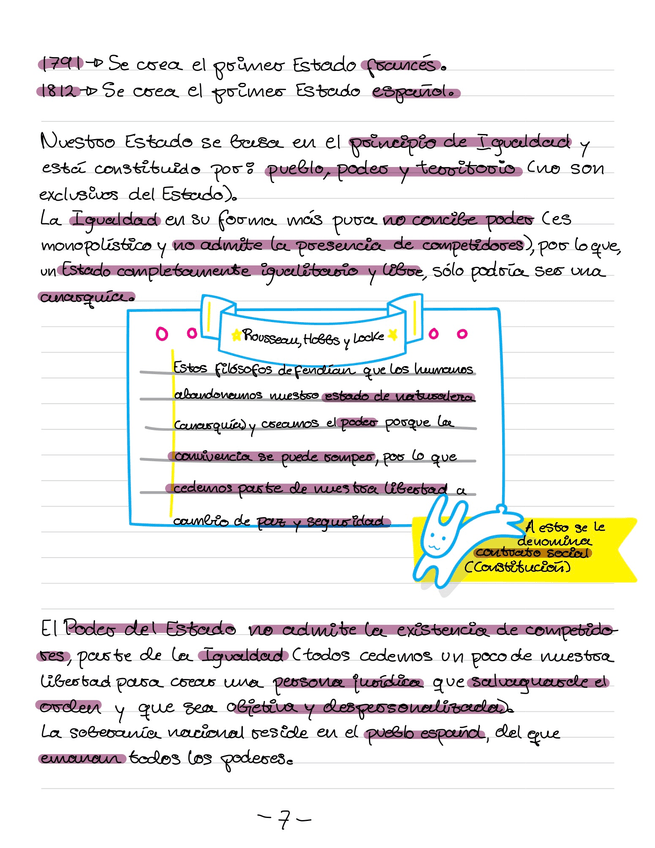 1791 → Se crea el primer Estado francés.
1812 → Se crea el primer Estado español.
Nuestro Estado se basa en el principio de Igualdad y
está constituido por: pueblo, poder y territorio (no son
exclusivos del Estado).
La Igualdad en su forma más pura no concibe poder (es
monopolístico y no admite la presencia de competidores), por lo que,
un Estado completamente igualitario y libre, sólo podría ser una
anarquía.
Rousseau, Hobbs y Locke
Estos filósofos defendían que los humanos
abandonamos nuestro estado de naturaleza
(anarquía) y creamos el poder porque la
convivencia se puede romper, por lo que
cedemos parte de nuestra libertad a
cambio de paz y seguridad
A esto se le
denomina
contrato social
(Constitución)
El Poder del Estado no admite la existencia de competido-
res, parte de la Igualdad (todos cedemos un poco de nuestra
libertad para crear una persona jurídica que salvaguarde el
orden y que sea objetiva y despersonalizada).
La soberanía nacional reside en el pueblo español, del que
emanan todos los poderes.
-7-